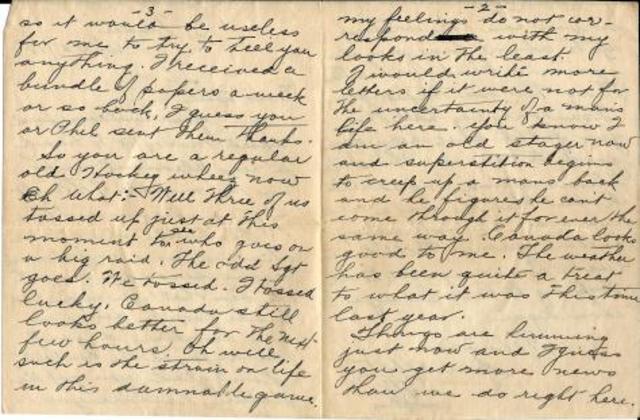 -3-
so it would be useless
for me to try to tell you
anything. I received a
bundle of papers a week
or so back, I guess you
or Phil sent them thanks.
So you are a regular
old Hockey wheez now
Eh what:- Well three of us
tossed up just at this
moment to see who goes on
a big raid. The odd Sgt
goes. We tossed. I tossed
lucky. Canada still
looks better for the next
few hours. Oh well
such is the strain on life
in this damnable game.
-2-
my feelings do not cor-
respond with my
looks in the least.
I would write more
letters if it were not for
the uncertainty of a mans
life here. You know I
am an old stager now
and superstition begins
to creep up a mans back
and he figures he cant
come through it for ever the
same way. Canada looks
good to me. The weather
has been quite a treat
to what it was this time
last year.
Things are humming
just now and I guess
you get more news
than we do right here.